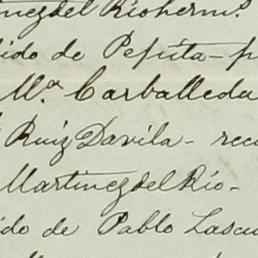 inez del Rio herm.s
ido de Pepita - p
M.a Carballeda
Ruiz Davila - rec
Martinez del Rio -
ido de Pablo Lascu